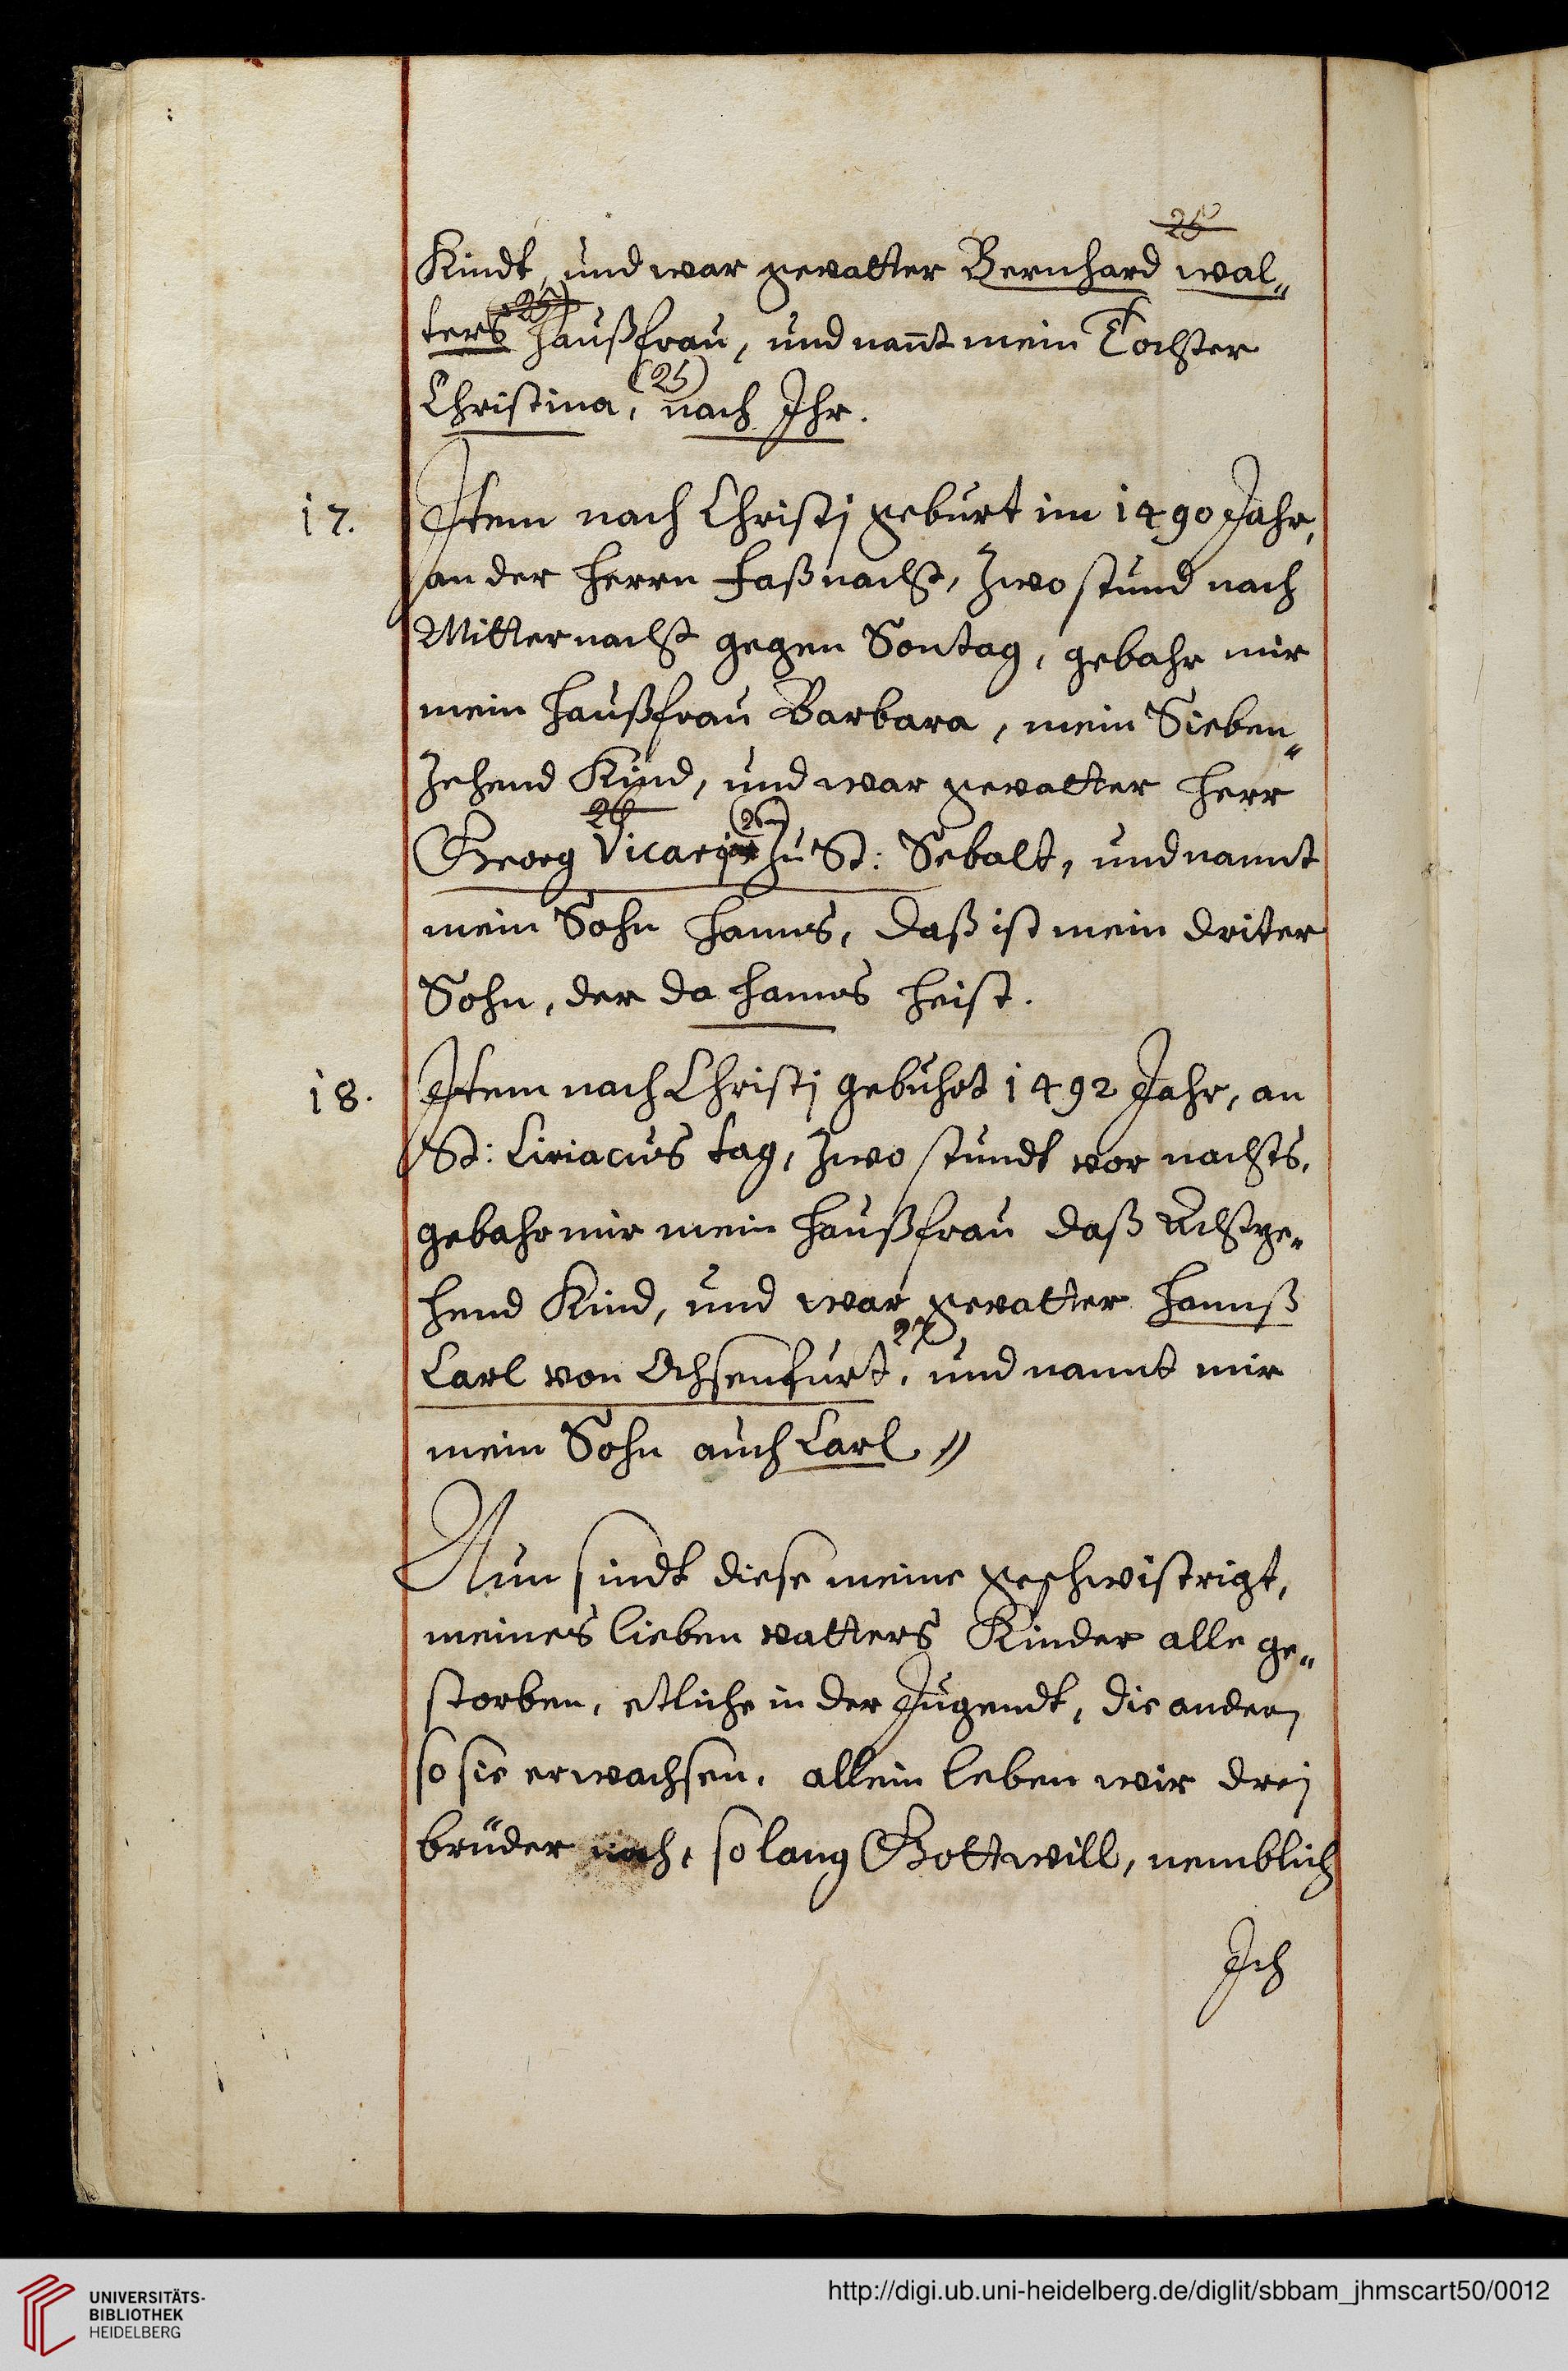 26
Kindt, und war gevatter Bernhard wal„
ters (25) haußfrau, und nañt mein Tochter
Christina, (25) nach Ihr.
17. Item nach Christj geburt im 1490 Jahr,
an der herrn faßnacht, zwo stund nach
Mitternacht gegen Sontag, gebahr mir
mein haußfrau Barbara, mein Sieben„
zehend Kind, und war gevatter herr
26 (26)
Georg Vicarj zu St: Sebalt, und nannt
mein Sohn hanns, daß ist mein driter
Sohn, der da hanns heist.
18. Item nach Christj gebuhrt 1492 Jahr, an
St: Ciriacus tag, zwo stundt vor nachts,
gebahr mir mein haußfrau daß Achtze„
hend Kind, und war gevatter hannß
27
Carl von Ochsenfurt, und nannt mir
mein Sohn auch Carl //
Nun sindt diese meine geschwistrigt,
meines lieben vatters Kinder alle ge„
storben, etliche in der Jugendt, die andern
so sie erwachsen. allein leben wir drej
brüder noch, so lang Gott will, nemblich
Ich
UNIVERSITÄTS-
BIBLIOTHEK
HEIDELBERG
http://digi.ub.uni-heidelberg.de/diglit/sbbam_jhmscart50/0012